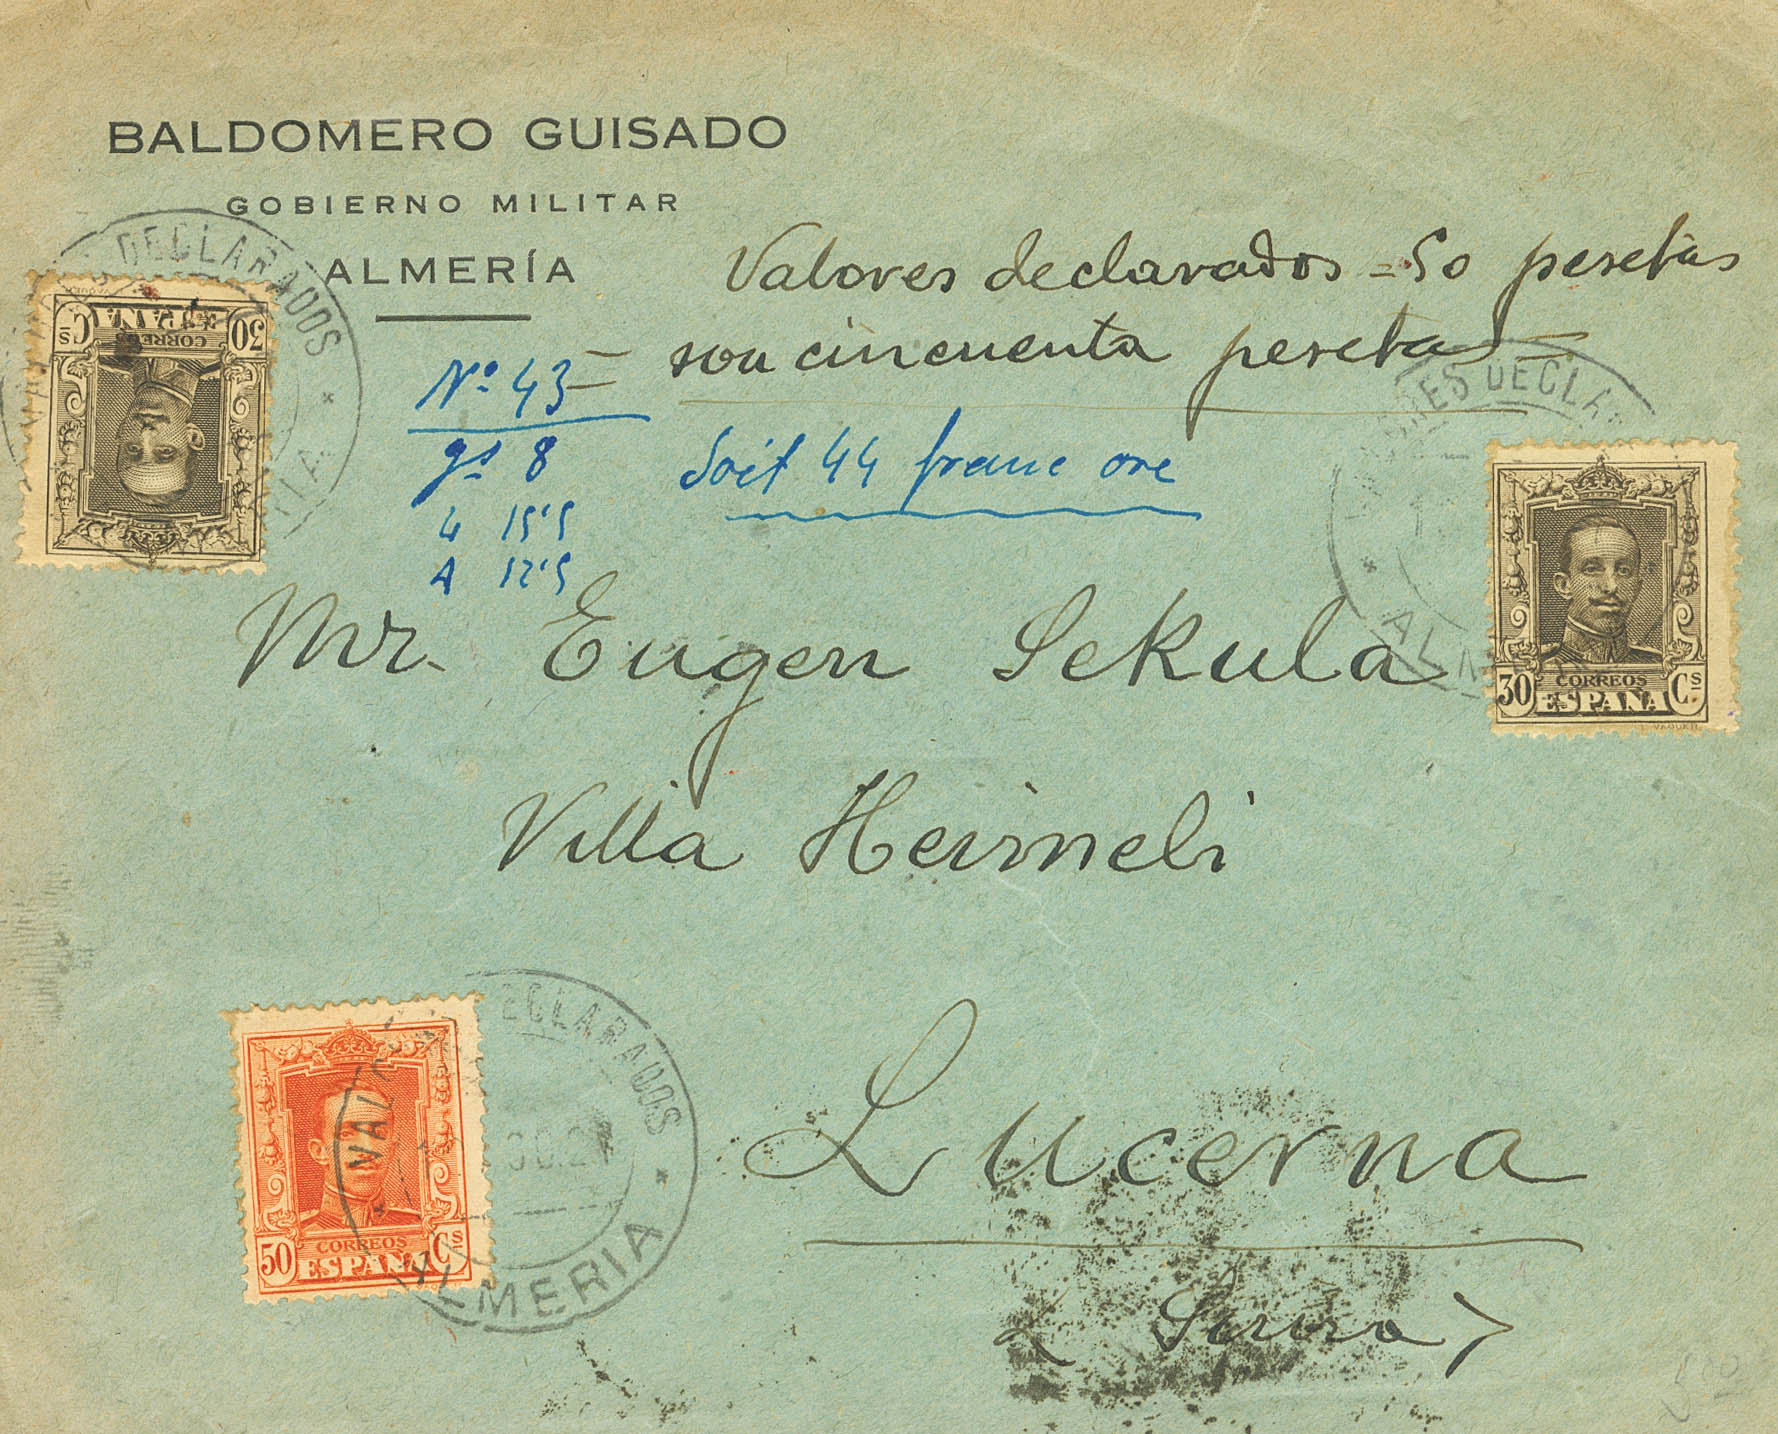 BALDOMERO GUISADO
GOBIERNO MILITAR
ALMERÍA
Valores declarados = 50 pesetas
= son cincuenta pesetas =
Nº 43
gs 8
L 15'5
A 12'5
Soit 44 franc ore
Mr. Eugen Sekula
Villa Heimeli
Lucerna
< Suiza >
DECLARADOS
30 Cs
CORREOS
ESPAÑA
VALORES DECLA
ALM
30 CORREOS Cs
ESPAÑA
VAQUER
VAL DECLARADOS
ALMERIA
50 CORREOS Cs
ESPAÑA